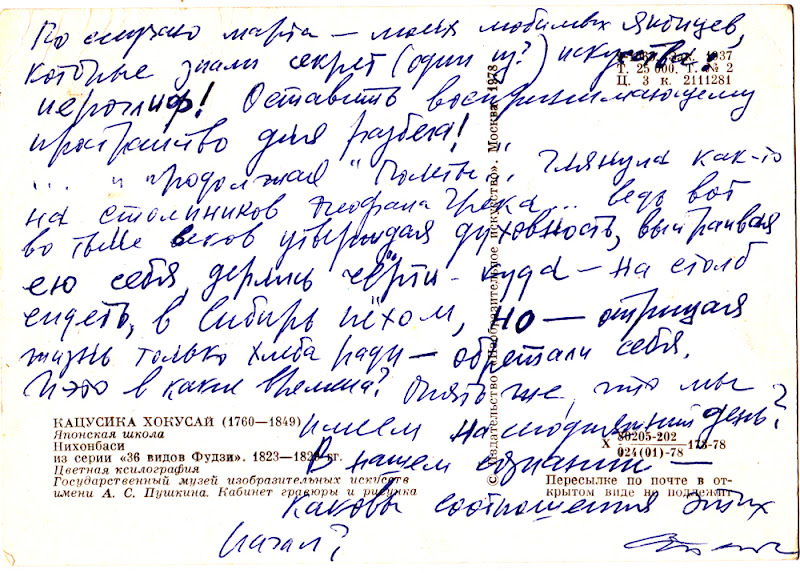 По случаю марта — моих любимых японцев,
которые знали секрет (один из?) искусства:
иероглиф! Оставить воспринимающему
пространство для разбега!
... и продолжая "          ". Глянула как-то
на столпников Феофана Грека... ведь вот
во тьме веков утверждая духовность, выстраивая
ею себя, дёрлись чёрти-куда — на столб
сидеть, в Сибирь пёхом, но — отрицая
жизнь только хлеба ради — обретали себя.
И это в какие времена? Опять же, что мы
имеем на сегодняшний день?
В нашем сознании —
каковы соотношения этих
начал?
Зак. 1937
Т. 25 000. Т. № 2
Ц. 3 к. 2111281
© «Издательство «Изобразительное искусство». Москва. 1978
КАЦУСИКА ХОКУСАЙ (1760—1849)
Японская школа
Нихонбаси
из серии «36 видов Фудзи». 1823—1829 гг.
Цветная ксилография
Государственный музей изобразительных искусств
имени А. С. Пушкина. Кабинет гравюры и рисунка
X 80205-202 / 024(01)-78 178-78
Пересылке по почте в от-
крытом виде не подлежит